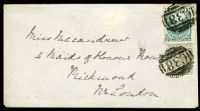 Miss Meiandrew
4 Maids of Honour Row
Richmond
Nr London